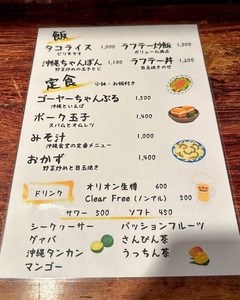 飯
タコライス 1,000 ラフテー炒飯 1,000
ピリ辛です ボリューム満点
沖縄ちゃんぽん 1,100 ラフテー丼 1,200
野菜炒めの玉子とじ 目玉焼きのせ
定食 小鉢・お椀付き
ゴーヤーちゃんぷる 1,500
沖縄といえば
ポーク玉子 1,400
スパムとオムレツ
みそ汁 1,000
沖縄食堂の定番メニュー
おかず 1,400
野菜炒めと目玉焼き
ドリンク オリオン生樽 600
Clear Free (ノンアル) 500
サワー 500 ソフト 450
シークヮーサー パッションフルーツ
グァバ さんぴん茶
沖縄タンカン うっちん茶
マンゴー